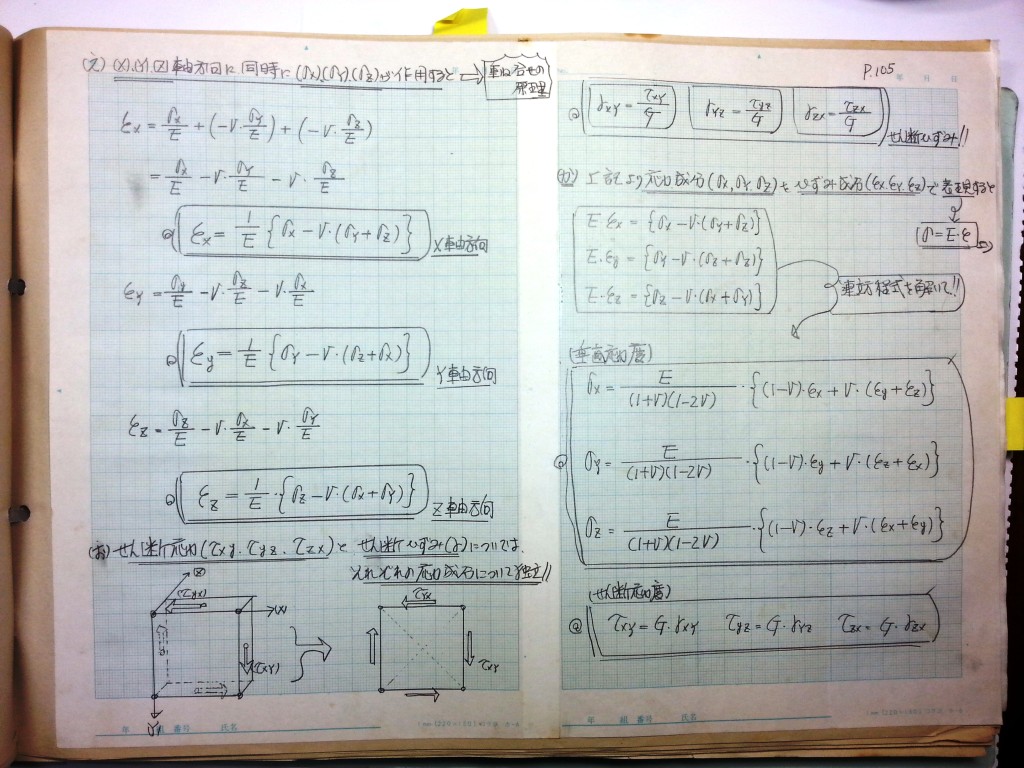 (え) (X).(Y).(Z)車由方向に同時に(σx)(σy).(σz)が作用すると → 重ね合せの原理
εx = σx/E + (-ν・σy/E) + (-ν・σz/E)
= σx/E - ν・σy/E - ν・σz/E
εx = 1/E {σx - ν・(σy + σz)} X軸方向
εy = σy/E - ν・σz/E - ν・σx/E
εy = 1/E {σy - ν・(σz + σx)} Y軸方向
εz = σz/E - ν・σx/E - ν・σy/E
εz = 1/E・{σz - ν・(σx + σy)} Z軸方向
(お) せん断応力(τxy. τyz. τzx)と せん断ひずみ(γ)については、
それぞれの応力成分について独立!!
(Z)
(τyx)
(X)
(τxy)
(Y)
τyx
τxy
年 組 番号 氏名
P.105
年 月 日
γxy = τxy/G γyz = τyz/G γzx = τzx/G
せん断ひずみ!!
(か) 上記より応力成分(σx,σy.σz)をひずみ成分(εx.εy.εz)で表現すると
σ = E・ε
E・εx = {σx - ν・(σy + σz)}
E・εy = {σy - ν・(σz + σx)}
E・εz = {σz - ν・(σx + σy)}
連立方程式を解いて!!
(垂直応力度)
σx = E/(1+ν)(1-2ν)・{(1-ν)・εx + ν・(εy + εz)}
σy = E/(1+ν)(1-2ν)・{(1-ν)・εy + ν・(εz + εx)}
σz = E/(1+ν)(1-2ν)・{(1-ν)・εz + ν・(εx + εy)}
(せん断応力度)
τxy = G・γxy τyz = G・γyz τzx = G・γzx
年 組 番号 氏名